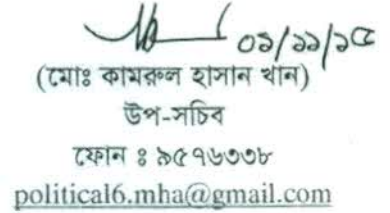 ০১/১১/১৫
(মোঃ কামরুল হাসান খান)
উপ-সচিব
ফোন ঃ ৯৫৭৬৩৩৮
political6.mha@gmail.com